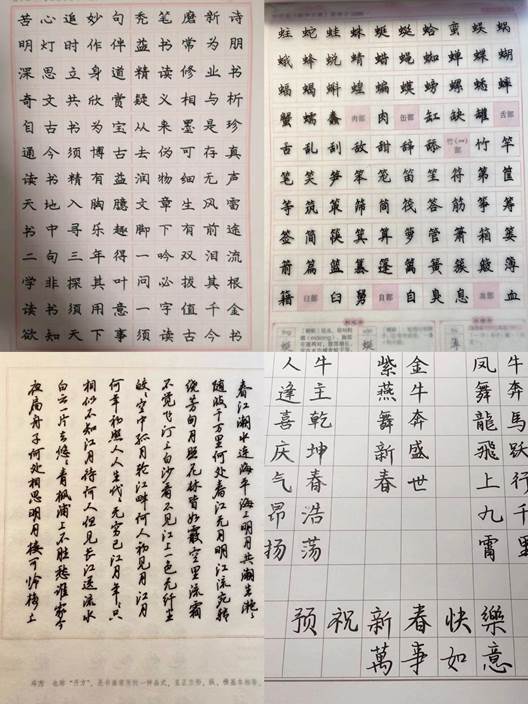 苦心追妙句秃笔磨新诗
明灯时作伴蓝书常为朋
深思立身道精读修业书
奇文共欣赏疑义相与析
自古书为宝从来墨是珍
通今须博古去伪可存真
读书精有益润物细无声
天地入胸臆文章生风雷
书中寻乐趣脚下有前途
二句三年得一吟双泪流
学非探其叶问必拔其根
读书须用意一字值千金
欲知天下事须读古今书
蛀蛇蛙蛛蜓蜒蛤蛮蜈蜗
蛾蜂蜕蜻蜡蝇蜘蝉蝶螂
蝠蝎蝌蝗蝙蟆螃螺蟋蟀
蟹蠕蠢肉部肉缶部缸缺罐舌部
舌乱刮敌甜辞舔竹(⺮)部竹竿
笔笑笋笨笼笛笙符第笸
等筑策筛筒筏答筋筝筹
签简筷箕算箩管萧箱篓
箭篮篡篷篱簧簇簸簿
籍臼部臼舅自部自臭息血部血
春江潮水连海平海上明月共潮生滟滟
随波千万里何处春江无月明江流宛转
绕芳甸月照花林皆如霰空里流霜
不觉飞汀上白沙看不见江天一色无纤尘
皎皎空中孤月轮江畔何人初见月江月
何年初照人人生代代无穷已江月年年只
相似不知江月待何人但见长江送流水
白云一片去悠悠青枫浦上不胜愁谁家今
夜扁舟子何处相思明月楼可怜楼上
牛奔马跃行千里
凤舞龍飛上九霄
金牛奔盛世
紫燕舞新春
牛主乾坤春浩荡
人逢喜庆气昂扬
预祝新春快樂
萬事如意